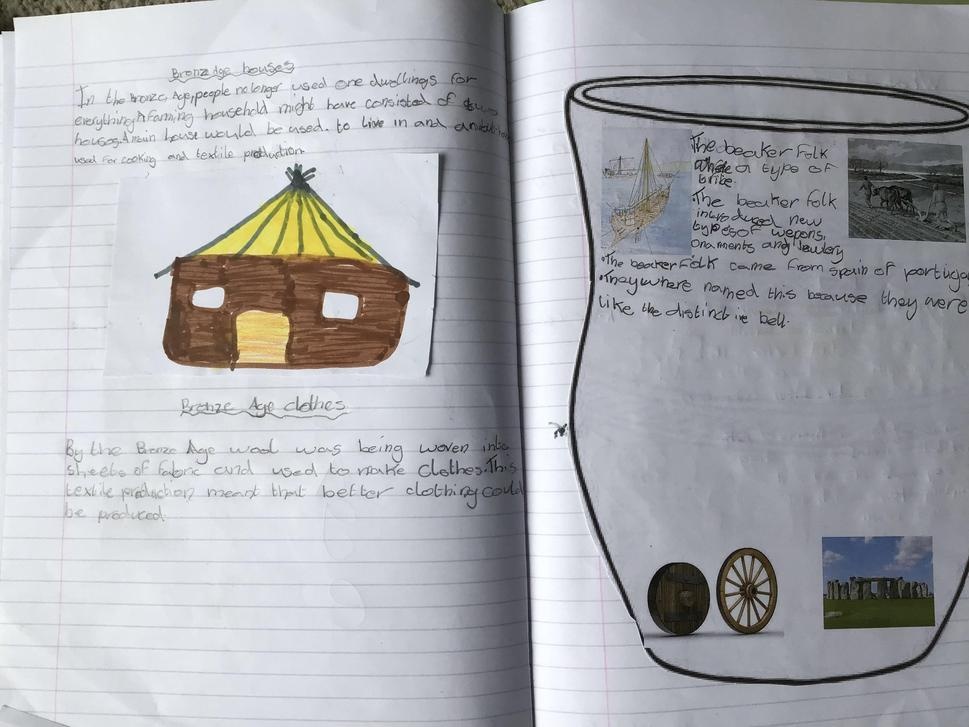 Bronze Age houses
In the Bronze Age, people no longer used one dwellings for
everything. A farming household might have consisted of two
houses. A main house would be used. to live in and
used for cooking and textile production.
Bronze Age clothes
By the Bronze Age wool was being woven into
sheets of fabric and used to make clothes. This
textile production meant that better clothing could
be produced.
The beaker folk
a type of
tribe.
.The beaker folk
introduced new
types of wepons,
onaments and Jewlery
.The beaker folk came from spain of portugal
.They where named this because they were
like the distinctive bell.